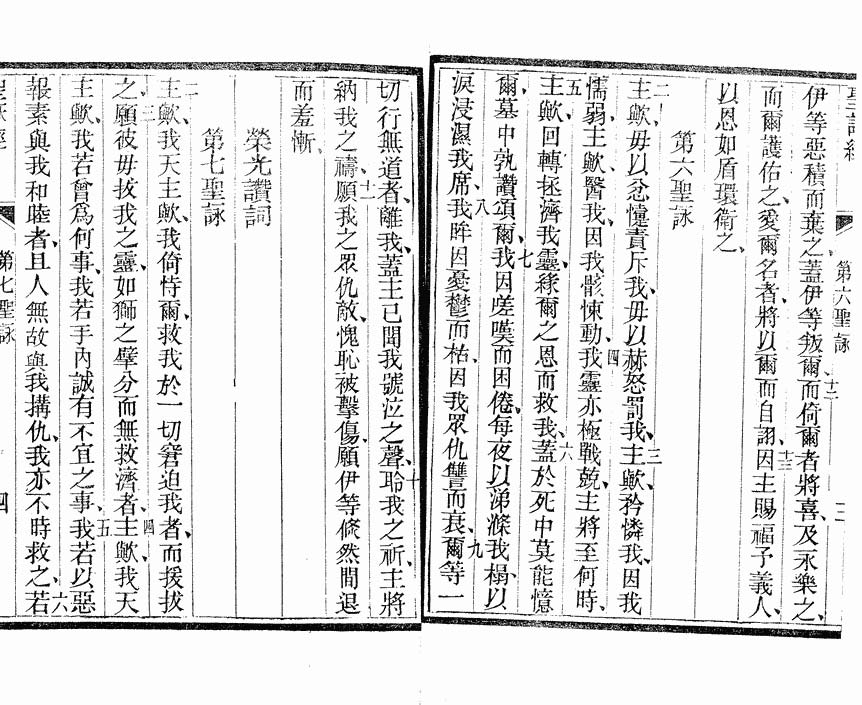 聖詠經 第六聖詠 三
伊等惡積而棄之、蓋伊等叛爾、十二而倚爾者將喜、及永樂之、
而爾護佑之、愛爾名者、將以爾而自詡、十三因主賜福予義人、
以恩如盾環衛之、
第六聖詠
二主歟、毋以忿懥責斥我、毋以赫怒罰我、三主歟、矜憐我、因我
懦弱、主歟、醫我、因我骸悚動、四我靈亦極戰兢、主將至何時、
五主歟、回轉拯濟我靈、緣爾之恩而救我、六蓋於死中莫能憶
爾、墓中孰讚頌爾、七我因嗟嘆而困倦、每夜以涕滌我榻、以
淚浸濕我席、八我眸因憂鬱而枯、因我眾仇讐而衰、九爾等一
切行無道者、離我、蓋主已聞我號泣之聲、十聆我之祈、主將
納我之禱、十一願我之眾仇敵、愧恥被擊傷、願伊等倏然間退
而羞慚、
榮光讚詞
第七聖詠
二主歟、我天主歟、我倚恃爾、救我於一切窘迫我者、而援拔
之、三願彼毋拔我之靈、如獅之擘分而無救濟者、四主歟、我天
主歟、我若曾爲何事、我若手內誠有不宜之事、五我若以惡
報素與我和睦者、且人無故與我搆仇、我亦不時救之、六若
第七聖詠 四